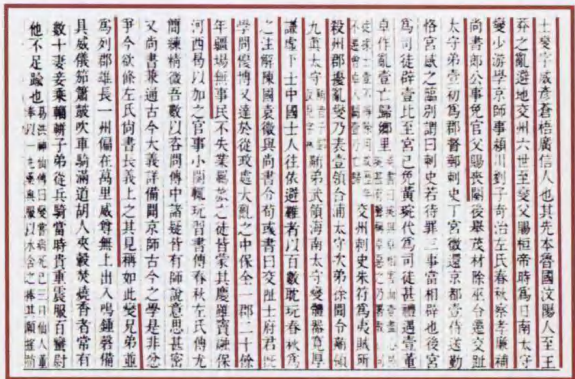 士燮字威彥蒼梧廣信人也其先本魯國汶陽人至王
莽之亂避地交州六世至燮父賜桓帝時爲日南太守
燮少游學京師事潁川劉子奇治左氏春秋察孝廉補
尚書郎公事免官父賜喪闋後舉茂材除巫令遷交趾
太守弟壹初爲郡督郵刺史丁宮徵還京都壹侍送勤
恪宮感之臨別謂曰刺史若待罪三事當相辟也後宮
爲司徒辟壹比至宮已免黃琬代爲司徒甚禮遇壹董
卓作亂壹亡歸鄉里
交州刺史朱符爲夷賊所
殺州郡擾亂燮乃表壹領合浦太守次弟徐聞令䵋領
九真太守
䵋弟武領海南太守燮體器寬厚
謙虛下士中國士人往依避難者以百數耽玩春秋爲
之注解陳國袁徽與尚書令荀彧書曰交阯士府君既
學問優博又達於從政處大亂之中保全一郡二十餘
年疆埸無事民不失業羈旅之徒皆蒙其慶雖竇融保
河西曷以加之官事小闋輒玩習書傳春秋左氏傳尤
簡練精微吾數以咨問傳中諸疑皆有師說意思甚密
又尚書兼通古今大義詳備聞京師古今之學是非忿
爭今欲條左氏尚書長義上之其見稱如此燮兄弟並
爲列郡雄長一州偏在萬里威尊無上出入鳴鍾磬備
具威儀笳簫鼓吹車騎滿道胡人夾轂焚燒香者常有
數十妻妾乘輜軿子弟從兵騎當時貴重震服百蠻尉
他不足踰也
葛洪神仙傳曰燮嘗病死已三日仙人董
奉以一丸藥與服以水含之捧其頭搖